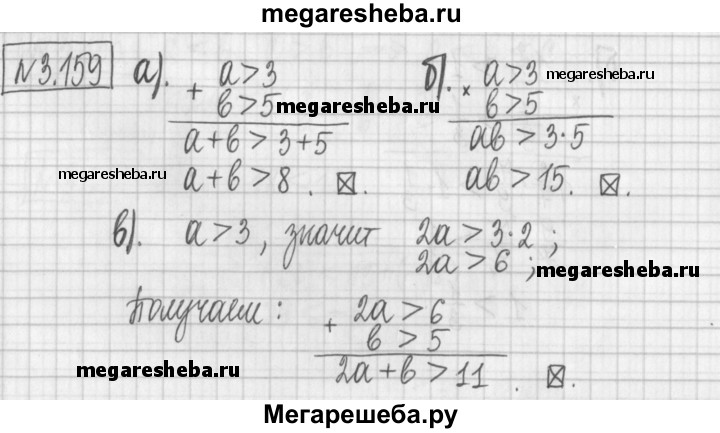 megaresheba.ru
№3.159 а). + a>3 б). × a>3 megaresheba.ru
b>5 megaresheba.ru b>5
a+b > 3+5 ab > 3·5
megaresheba.ru a+b > 8 . ☒. ab > 15. ☒.
в). a>3, значит 2a > 3·2 ;
2a > 6 ; megaresheba.ru
Получаем : + 2a > 6
b > 5
megaresheba.ru 2a+b > 11 . ☒.
Мегарешеба.ру